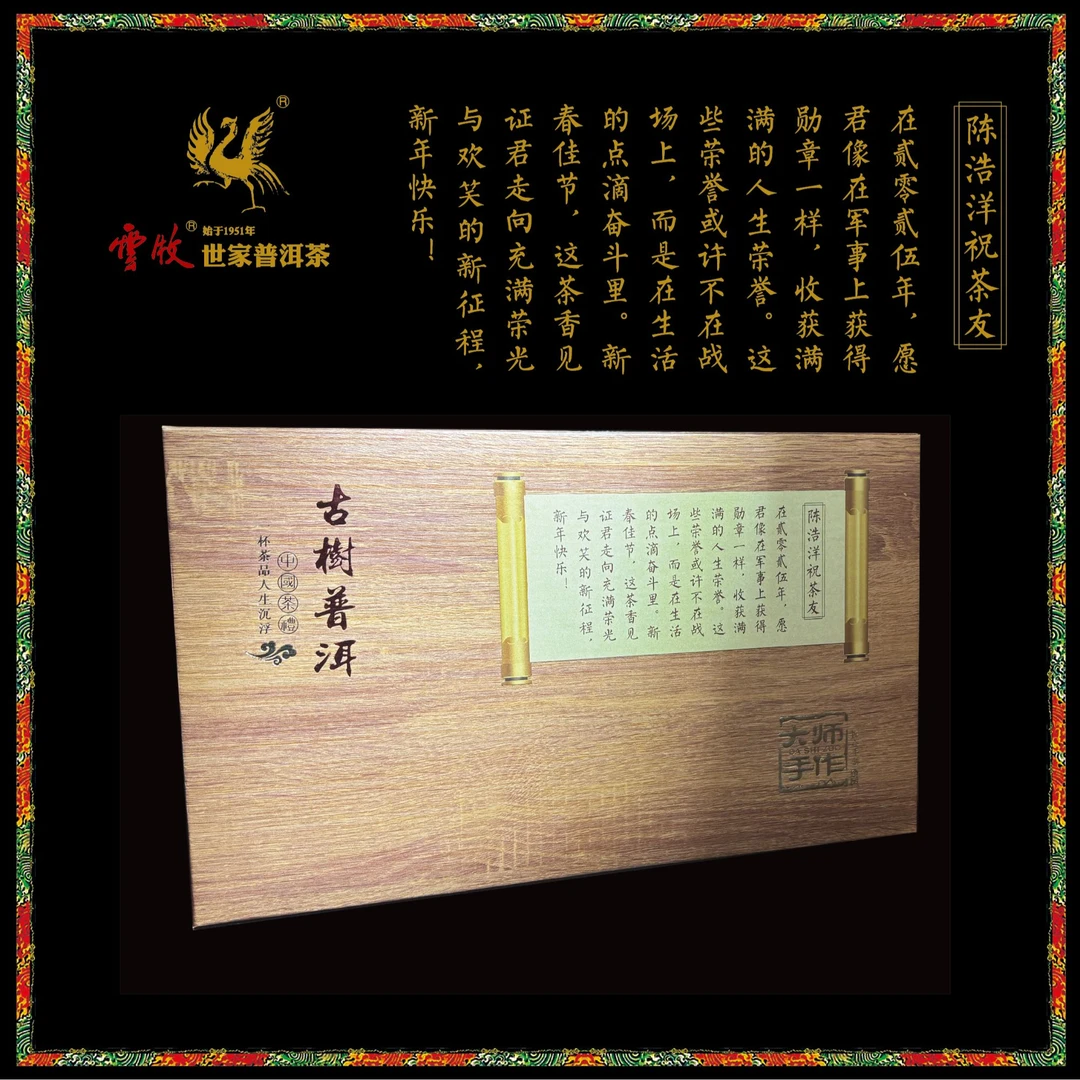 ®
雪牧®
始于1951年
世家普洱茶
陈浩洋祝茶友
在贰零贰伍年，愿
君像在军事上获得
勋章一样，收获满
满的人生荣誉。这
些荣誉或许不在战
场上，而是在生活
的点滴奋斗里。新
春佳节，这茶香见
证君走向充满荣光
与欢笑的新征程，
新年快乐！
古樹普洱
中國茶禮
杯茶品人生沉浮
陈浩洋祝茶友
在贰零贰伍年，愿
君像在军事上获得
勋章一样，收获满
满的人生荣誉。这
些荣誉或许不在战
场上，而是在生活
的点滴奋斗里。新
春佳节，这茶香见
证君走向充满荣光
与欢笑的新征程，
新年快乐！
大师
手作